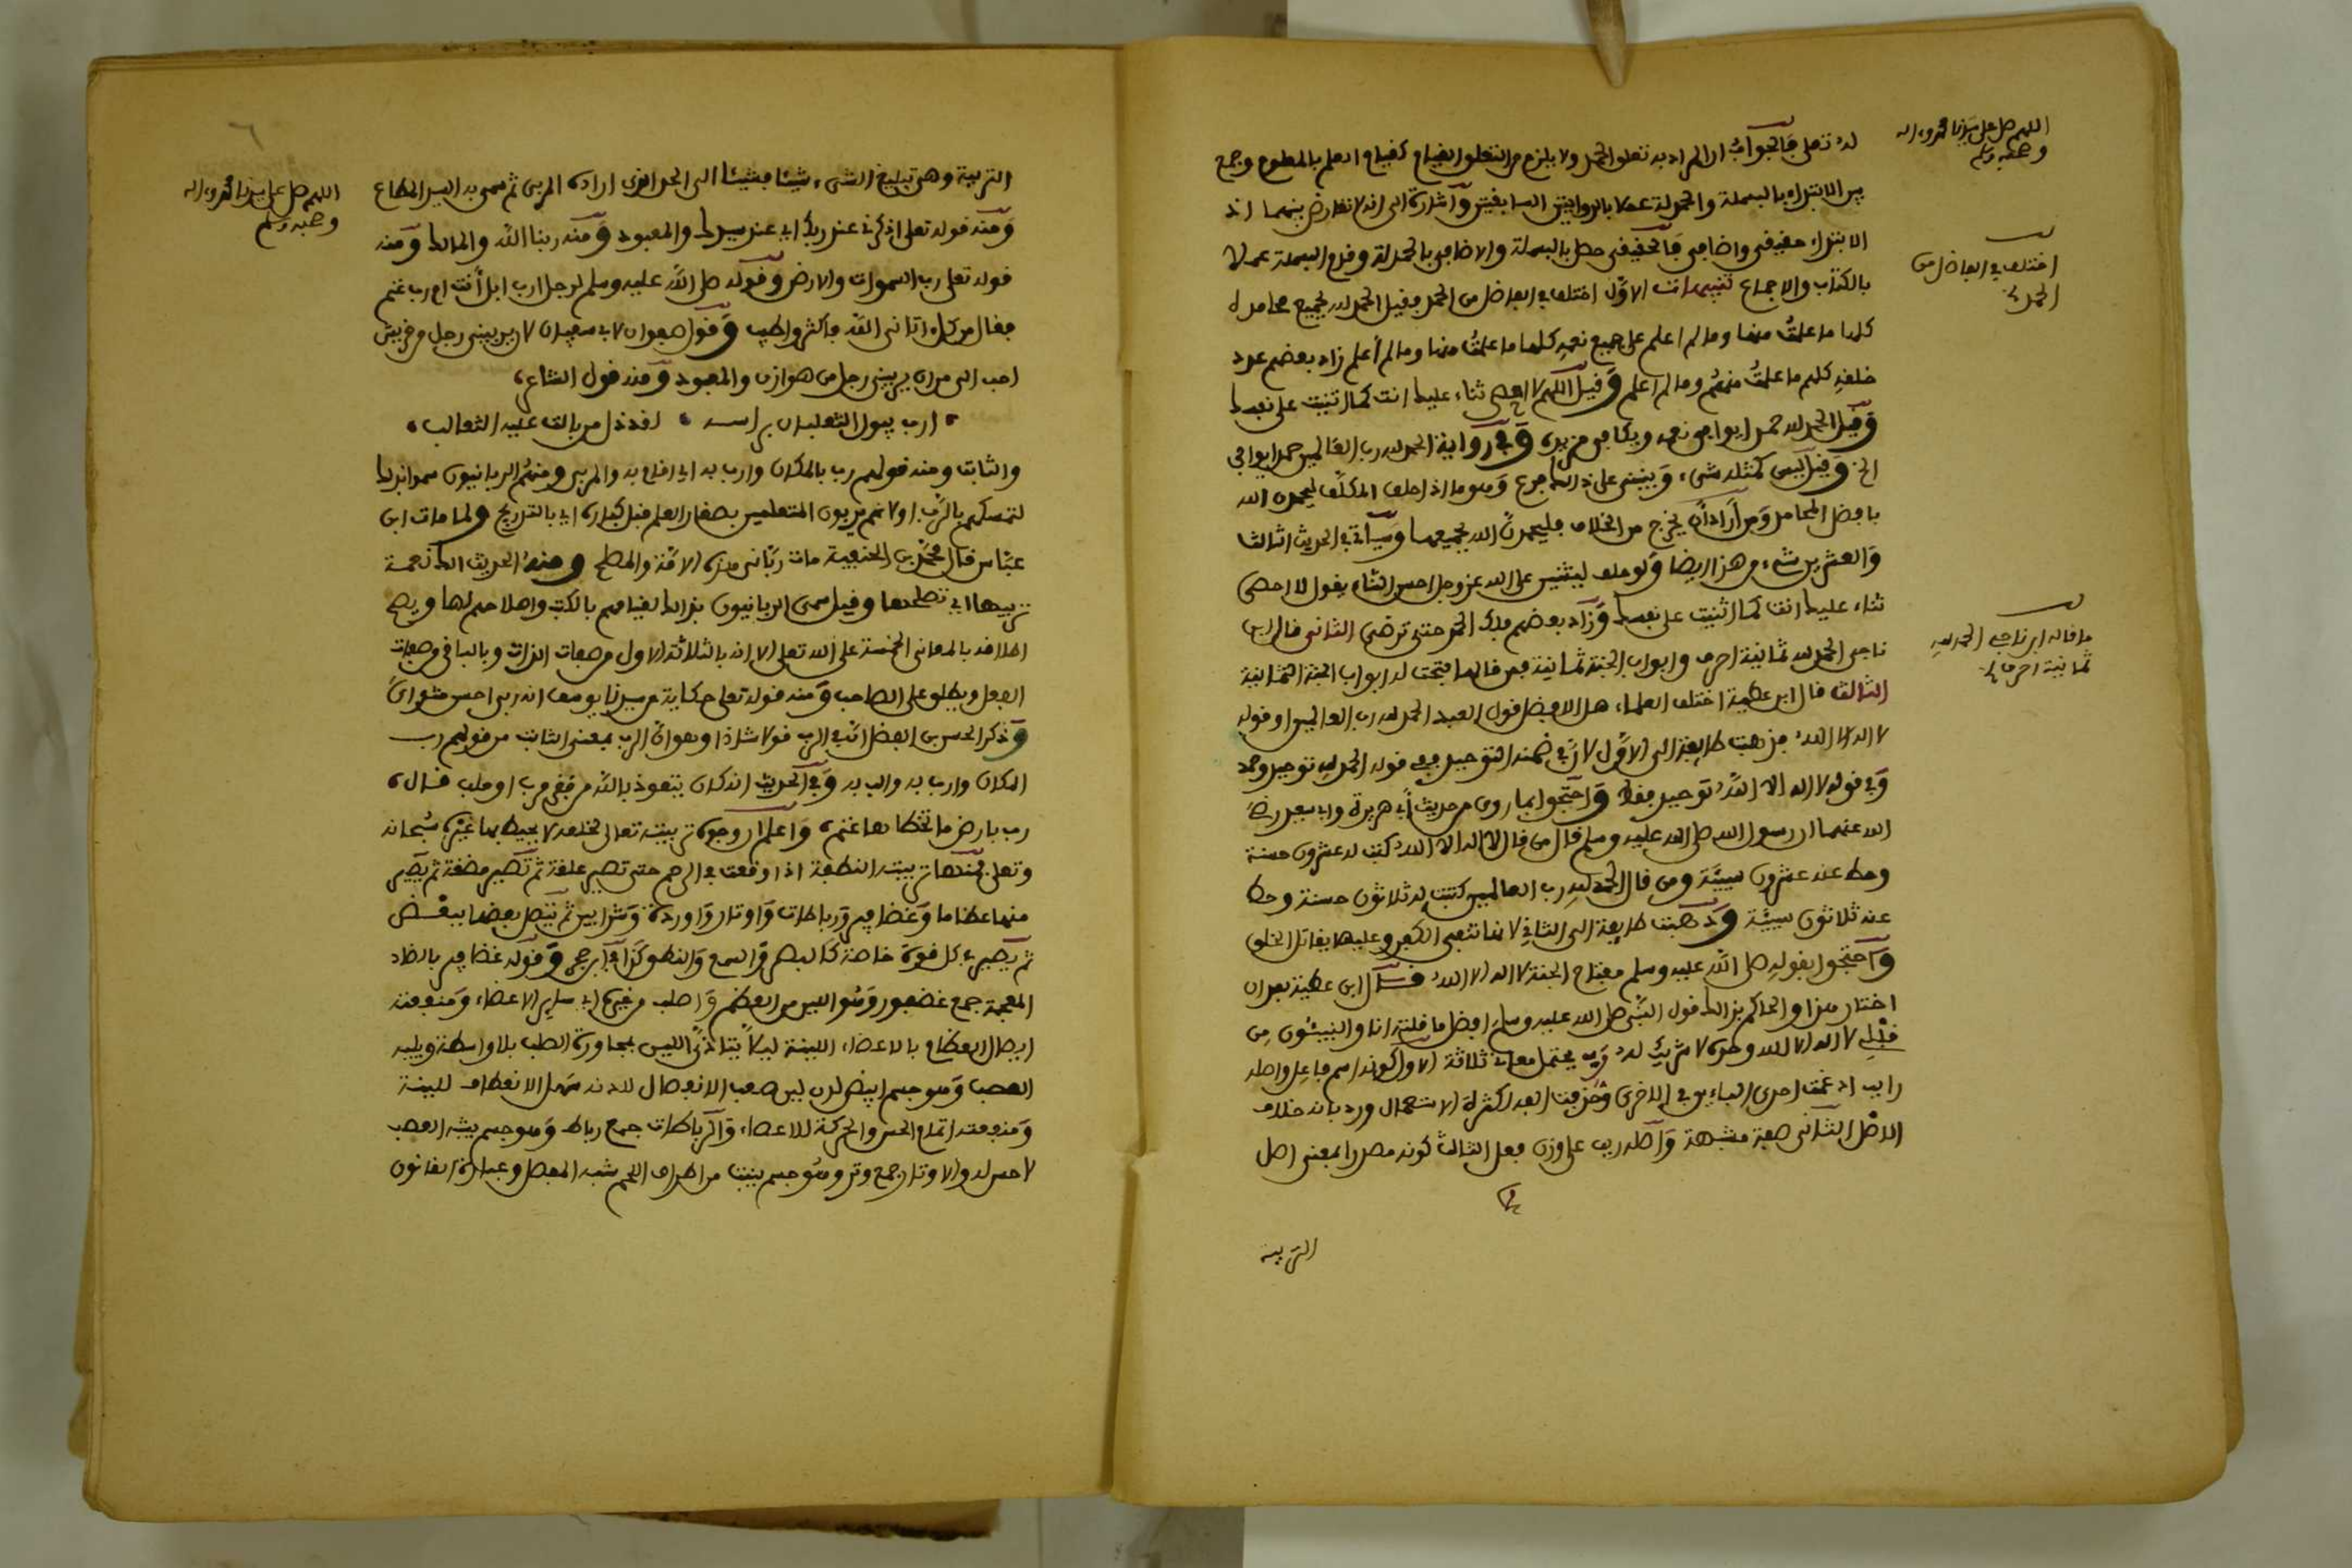 اللهم صل على سيدنا محمد وءاله
وصحبه وسلم
له تعلى فالجواب ان المراد به تعلق الحمد ولا يلزم من التعلق القيام كقيام العلم بالمعلوم وجمع
بين الابتداء بالبسملة والحمدلة عملا بالروايتين السابقتين واشارة الى انه لا تعارض بينهما اذ
الابتداء حقيقي واضافي فالحقيقي حصل بالبسملة والاضافي بالحمدلة وقدم البسملة عملا
اختلف في الفاضل من
الحمد
بالكتاب والاجماع تنبيهات الاول اختلف في الفاضل من الحمد فقيل الحمد لله بجميع محامده
كلها ما علمت منها وما لم اعلم على جميع نعمه كلها ما علمت منها وما لم أعلم زاد بعضهم عدد
خلقه كلهم ما علمت منهم وما لم اعلم وقيل اللهم لا احصي ثناء عليك انت كما اثنيت على نفسك
وقيل الحمد لله حمدا يوافي نعمه ويكافئ مزيده وفي رواية الحمد لله رب العالمين حمدا يوافي
الخ وقيل ليس كمثله شيء وينبني على ذالك فرع وهو ما اذا حلف المكلف ليحمدن الله
بافضل المحامد ومن أراد أن يخرج من الخلاف فليحمدن الله بجميعها وسيأتي في الحديث الثالث
والعشرين شيء من هذا ايضا ولو حلف ليثنين على الله عز وجل احسن الثناء يقول لا احصي
ثناء عليك انت كما اثنيت على نفسك وزاد بعضهم فلك الحمد حتى ترضى الثاني قال ابن
ما قاله ابن ناجي الحمد لله
ثمانية احرف
ناجي الحمد لله ثمانية احرف وابواب الجنة ثمانية فمن قالها فتحت له ابواب الجنة الثمانية
الثالث قال ابن عطية اختلف العلماء هل الافضل قول العبد الحمد لله رب العالمين او قوله
لا اله الا الله فذهبت طايفة الى الاول لان في ضمنه التوحيد ففي قوله الحمد لله توحيد وحمد
وفي قوله لا اله الا الله توحيد فقط واحتجوا بما روي من حديث أبي هريرة وابي سعيد رضي
الله عنهما ان رسول الله صلى الله عليه وسلم قال من قال لا اله الا الله كتب له عشرون حسنة
وحط عنه عشرون سيئة ومن قال الحمد لله رب العالمين كتبت له ثلاثون حسنة وحط
عنه ثلاثون سيئة وذهبت طايفة الى الثاني لانها تنفي الكفر وعليها يقاتل الخلق
واحتجوا بقوله صلى الله عليه وسلم مفتاح الجنة لا اله الا الله قال ابن عطية بعد ان
اختار هذا والحاكم بذالك قول النبي صلى الله عليه وسلم افضل ما قلته انا والنبيئون من
قبلي لا اله الا الله وحده لا شريك له رب يحتمل معاني ثلاثة الاول كونه اسم فاعل واصله
رابب ادغمت احدى الباءين في الاخرى وحذفت الفه لكثرة الاستعمال ورد بانه خلاف
الاصل الثاني صفة مشبهة واصله ربب على وزن فعل الثالث كونه مصدرا بمعنى اصل
التربية
٦
اللهم صل على سيدنا محمد وءاله
وصحبه وسلم
التربية وهي تبليغ الشيء شيئا فشيئا الى الحد الذي اراده المربي ثم سمي به السيد المطاع
ومنه قوله تعلى اذكرني عند ربك اي عند سيدك والمعبود ومنه ربنا الله والمالك ومنه
قوله تعلى رب السموات والارض وقوله صلى الله عليه وسلم لرجل ارب ابل أنت ام رب غنم
فقال من كل اتاني الله فاكثر واطيب وقول صفوان لابي سفيان لان يربيني رجل من قريش
احب الي من ان يربيني رجل من هوازن والمعبود ومنه قول الشاعر
ارب يبول الثعلبان براسه لقد ذل من بالت عليه الثعالب
والثابت ومنه قولهم رب بالمكان وارب به اي اقام به والمربي ومنهم الربانيون سموا بذلك
لتمسكهم بالرب او لانهم يربون المتعلمين بصغار العلم قبل كباره اي بالتدريج ولما مات ابن
عباس قال محمد بن الحنفية مات رباني هذه الامة والمصلح ومنه الحديث الك نعمة
تربيها اي تصلحها وقيل سمي الربانيون بذالك لقيامهم بالكتب واصلاحهم لها ويصح
اطلاقه بالمعاني الخمسة على الله تعلى الا انه بالثلاثة الاول من صفات الذات وبالباقي من صفات
الفعل ويطلق على الصاحب ومنه قوله تعلى حكاية عن سيدنا يوسف انه ربي احسن مثواي
وذكر الحسن بن الفضل ان في الرب قولا شاذا وهو ان الرب بمعنى الثابت من قولهم رب
المكان وارب به والب به وفي الحديث انه كان يتعوذ بالله من فقر مرب او ملب قال
رب بارض ما تخطاها غنم واعلم ان وجوه تربيته تعالى لخلقه لا يحيط بها غيره سبحانه
وتعلى فمنها تربيته النطفة اذا وقعت في الرحم حتى تصير علقة ثم تصير مضغة ثم يصير
منها عظاما وغضاريف ورباطات واوتارا واوردة وشرايين ثم يتصل بعضها ببعض
ثم يصير في كل قوة خاصة كالبصر والسمع والنطق وقوله غضاريف بالضاد
المعجمة جمع غضروف وهو الين من العظم واصلب من غيره اي ساير الاعضاء ومنفعته
ايصال العظام بالاعضاء اللينة ليلا يتأذى اللين بمجاورة الصلب بلا واسطة ويليه
العصب وهو جسم ابيض لدن لين صعب الانفصال للدنه سهل الانعطاف للينه
ومنفعته اتمام الحس والحركة للاعضاء والرباطات جمع رباط وهو جسم يشبه العصب
لا حس له والاوتار جمع وتر وهو جسم ينبت من اطراف اللحم شبه المفصل وعبارة القانون